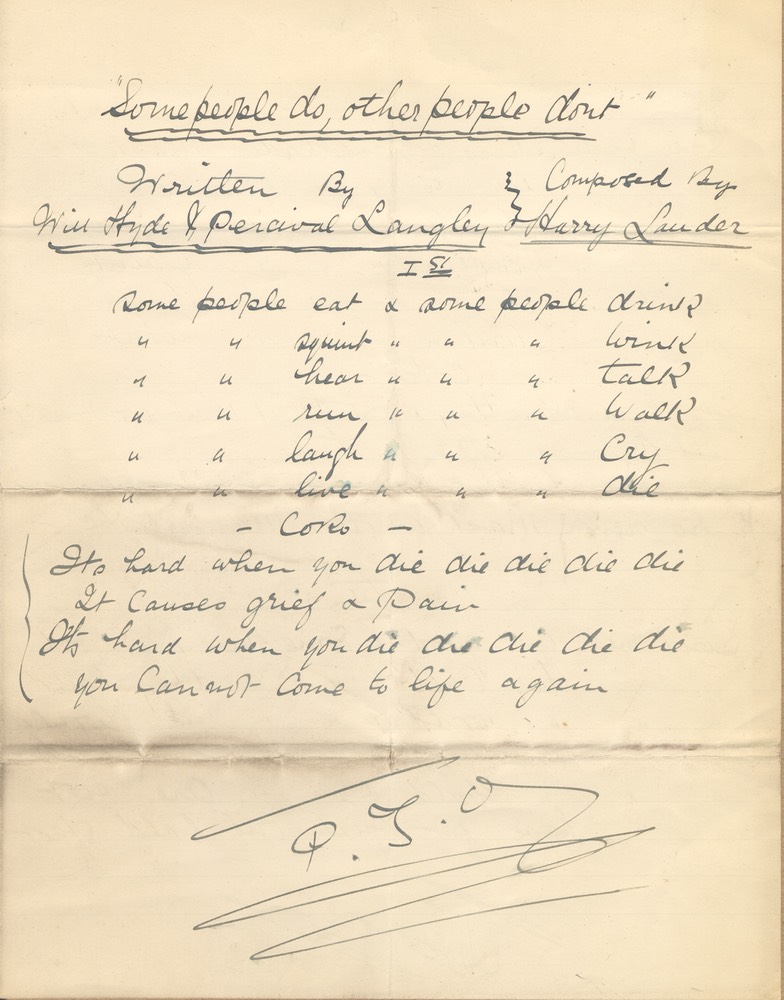 "Some people do, other people dont"
Written By } Composed By
Will Hyde & Percival Langley } Harry Lauder
I St
some people eat & some people drink
" " squint " " " wink
" " hear " " " talk
" " run " " " walk
" " laugh " " " Cry
" " live " " " die
- CoRo -
Its hard when you die die die die die
It Causes grief & Pain
Its hard when you die die die die die
you Cannot Come to life again
P.T.O